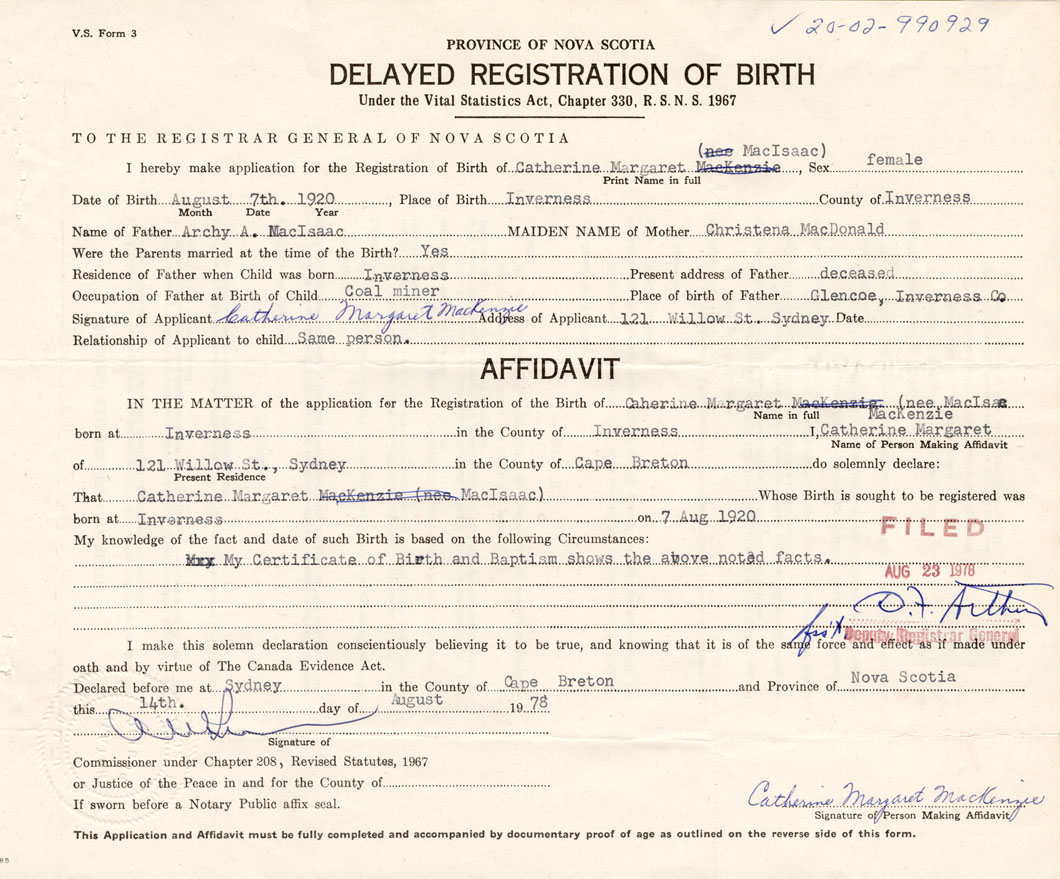 V.S. Form 3
✓ 20-02-990929
PROVINCE OF NOVA SCOTIA
DELAYED REGISTRATION OF BIRTH
Under the Vital Statistics Act, Chapter 330, R.S.N.S. 1967
TO THE REGISTRAR GENERAL OF NOVA SCOTIA
(nee MacIsaac)
I hereby make application for the Registration of Birth of Catherine Margaret MacKenzie, Sex female
Print Name in full
Date of Birth August 7th. 1920, Place of Birth Inverness County of Inverness
Month Date Year
Name of Father Archy A. MacIsaac MAIDEN NAME of Mother Christena MacDonald
Were the Parents married at the time of the Birth? Yes
Residence of Father when Child was born Inverness Present address of Father deceased
Occupation of Father at Birth of Child Coal miner Place of birth of Father Glencoe, Inverness Co.
Signature of Applicant Catherine Margaret MacKenzie Address of Applicant 121 Willow St. Sydney Date
Relationship of Applicant to child Same person.
AFFIDAVIT
IN THE MATTER of the application for the Registration of the Birth of Caherine Margaret MacKenzie (nee MacIsac
Name in full MacKenzie
born at Inverness in the County of Inverness I, Catherine Margaret
Name of Person Making Affidavit
of 121 Willow St., Sydney in the County of Cape Breton do solemnly declare:
Present Residence
That Catherine Margaret MacKenzie (nee MacIsaac) Whose Birth is sought to be registered was
born at Inverness on 7 Aug 1920
FILED
My knowledge of the fact and date of such Birth is based on the following Circumstances:
My Certificate of Birth and Baptism shows the above noted facts.
AUG 23 1978
D.F. Arthur
for Deputy Registrar General
I make this solemn declaration conscientiously believing it to be true, and knowing that it is of the same force and effect as if made under
oath and by virtue of The Canada Evidence Act.
Declared before me at Sydney in the County of Cape Breton and Province of Nova Scotia
this 14th. day of August 1978
Signature of
Commissioner under Chapter 208, Revised Statutes, 1967
or Justice of the Peace in and for the County of
If sworn before a Notary Public affix seal.
Catherine Margaret MacKenzie
Signature of Person Making Affidavit
This Application and Affidavit must be fully completed and accompanied by documentary proof of age as outlined on the reverse side of this form.
85